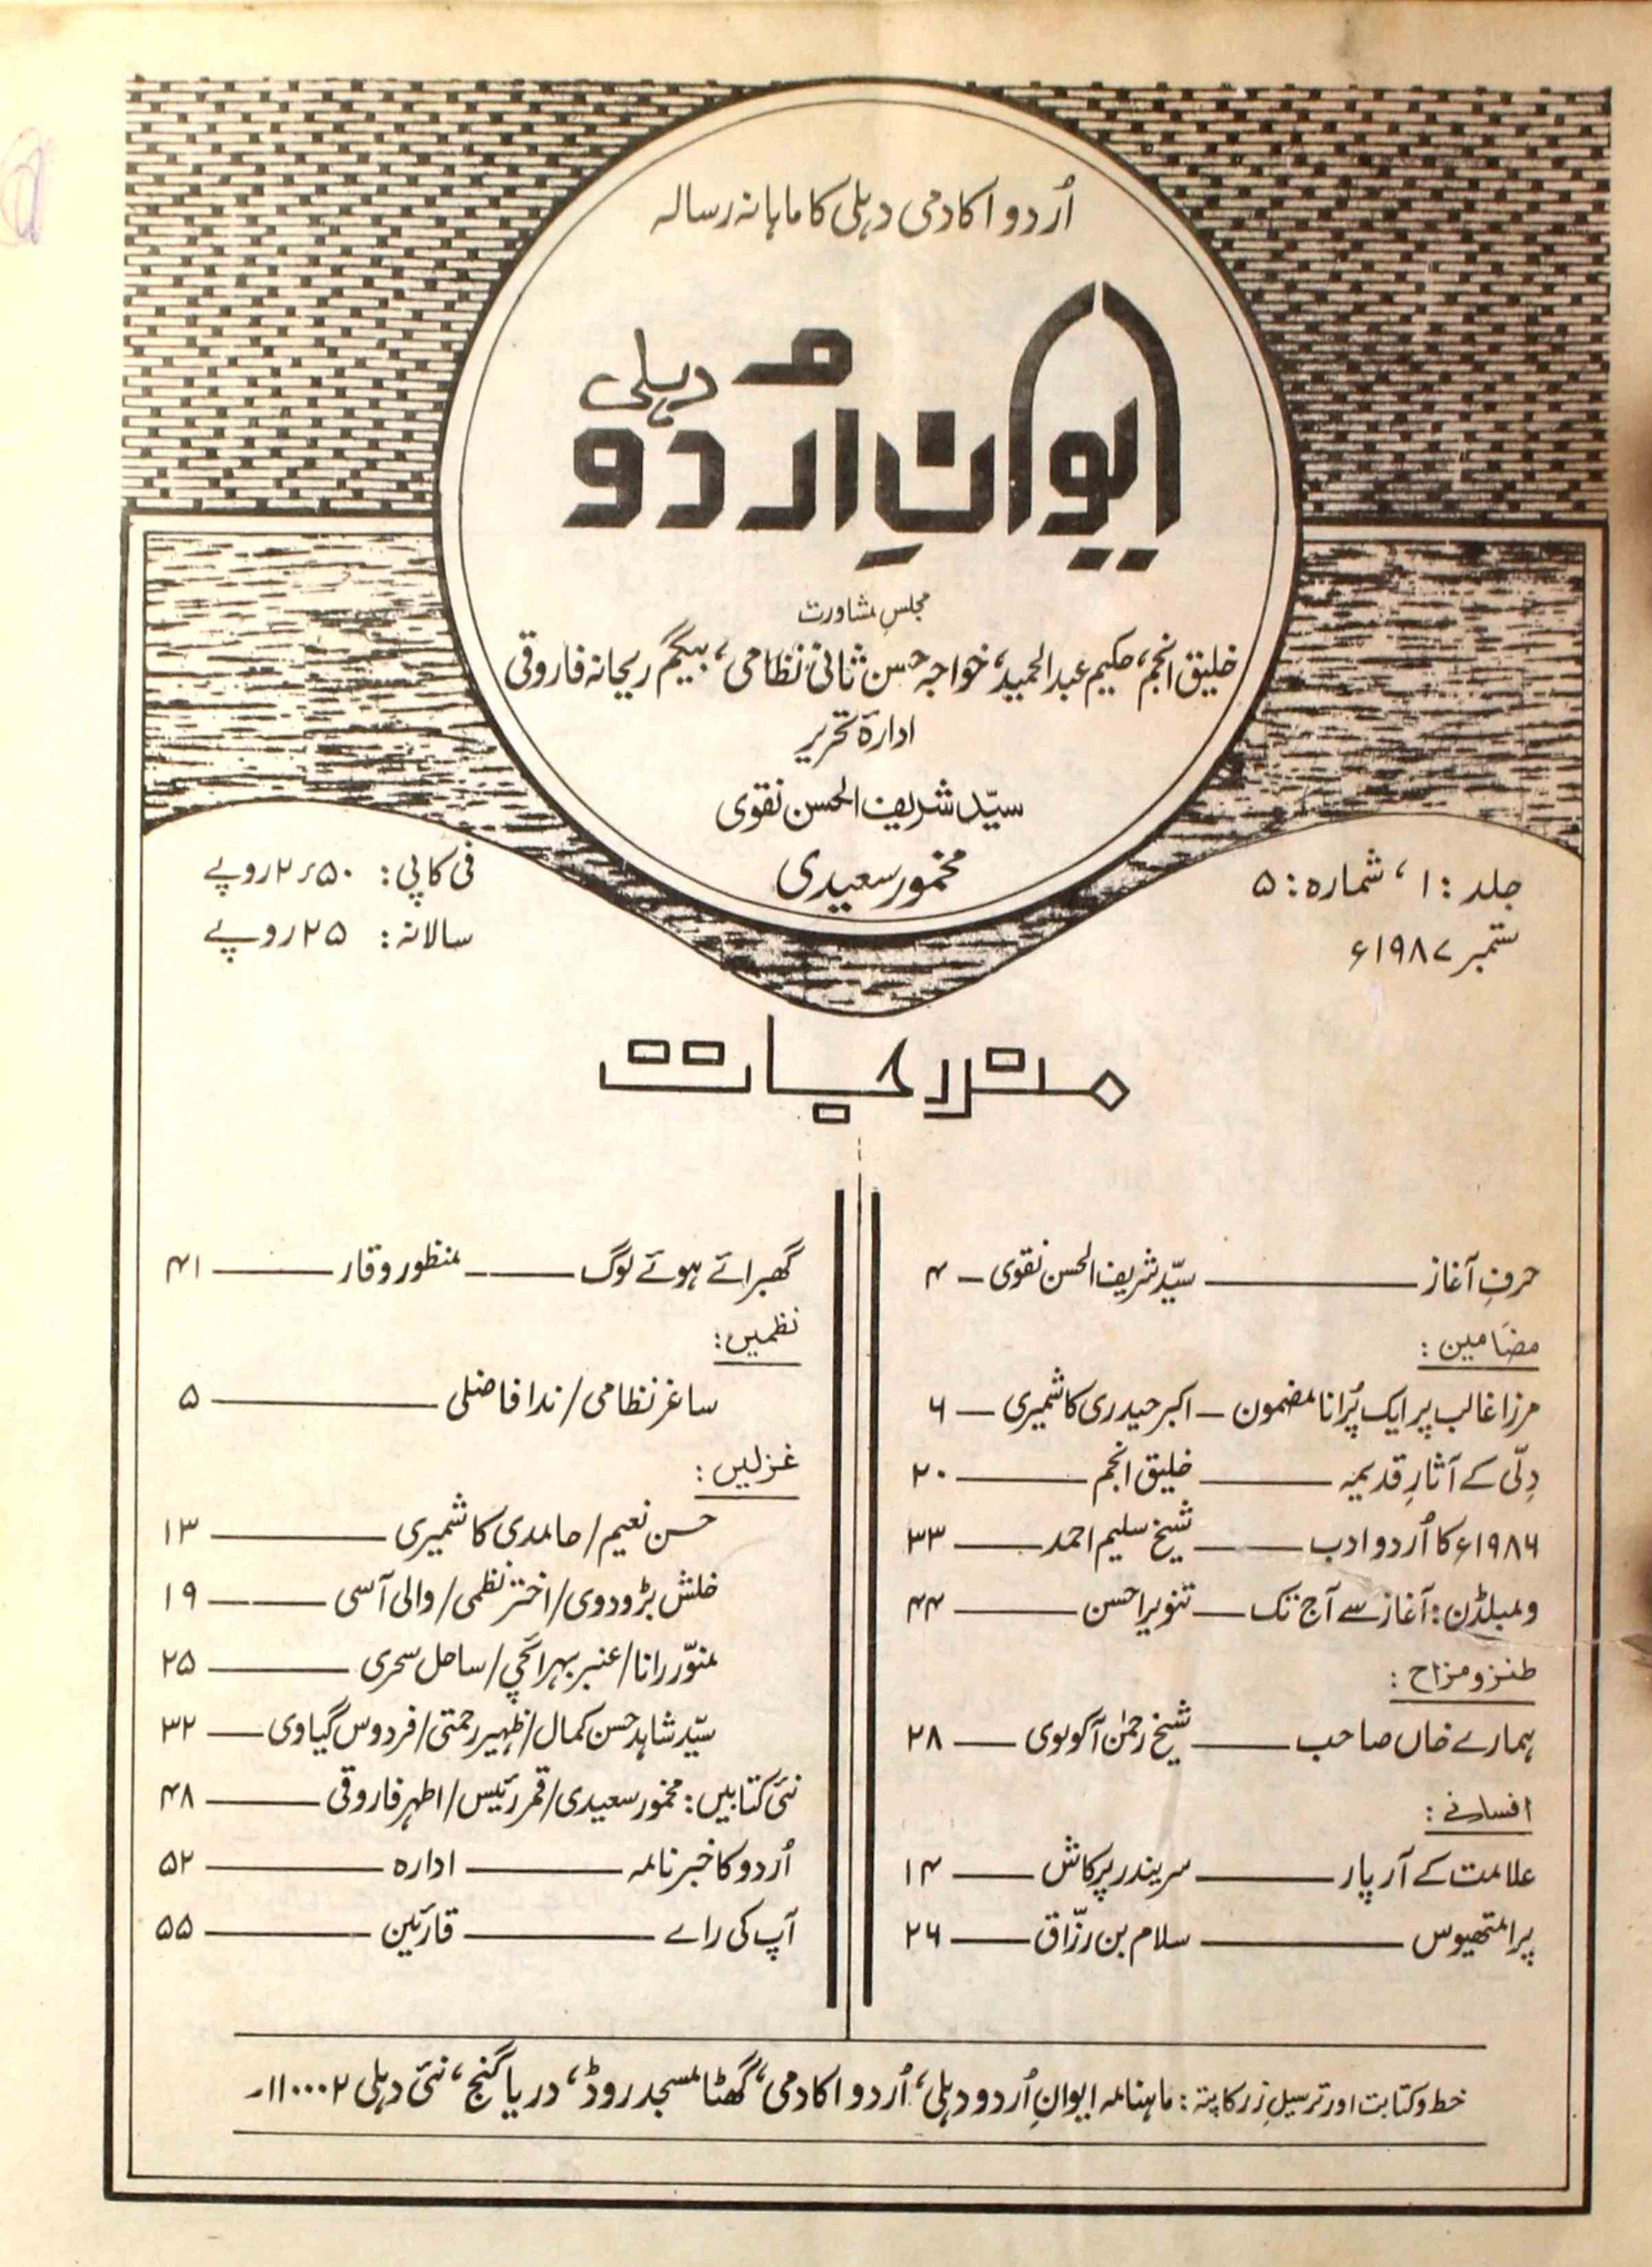 اُردو اکادمی دہلی کا ماہانہ رسالہ
ایوانِ اُردو دہلی
مجلسِ مشاورت
خلیق انجم، حکیم عبدالحمید، خواجہ حسن ثانی نظامی، بیگم ریحانہ فاروقی
ادارۂ تحریر
سیّد شریف الحسن نقوی
مخمور سعیدی
جلد: ۱، شمارہ: ۵
ستمبر ۱۹۸۷ء
فی کاپی: ۲٫۵۰ روپے
سالانہ: ۲۵ روپے
مندرجات
حرفِ آغاز ـــ سیّد شریف الحسن نقوی ـــ ۴
مضامین:
مرزا غالب پر ایک پُرانا مضمون ـــ اکبر حیدری کاشمیری ـــ ۶
دِلّی کے آثارِ قدیمہ ـــ خلیق انجم ـــ ۲۰
۱۹۸۶ء کا اُردو ادب ـــ شیخ سلیم احمد ـــ ۳۳
ومبلڈن: آغاز سے آج تک ـــ تنویر احسن ـــ ۴۴
طنز و مزاح:
ہمارے خاں صاحب ـــ شیخ رحمٰن آکولوی ـــ ۲۸
افسانے:
علامت کے آر پار ـــ سریندر پرکاش ـــ ۱۴
پرامتھیوس ـــ سلام بن رزّاق ـــ ۲۶
گھبرائے ہوئے لوگ ـــ منظور وقار ـــ ۴۱
نظمیں:
ساغر نظامی/ندا فاضلی ـــ ۵
غزلیں:
حسن نعیم/حامدی کاشمیری ـــ ۱۳
خلش بڑودوی/اختر نظمی/والی آسی ـــ ۱۹
منوّر رانا/عنبر بہرائچی/ساحل سحری ـــ ۲۵
سیّد شاہد حسن کمال/ظہیر رحمتی/فردوس گیاوی ـــ ۳۲
نئی کتابیں: مخمور سعیدی/قمر رئیس/اطہر فاروقی ـــ ۴۸
اُردو کا خبرنامہ ـــ ادارہ ـــ ۵۲
آپ کی رائے ـــ قارئین ـــ ۵۵
خط و کتابت اور ترسیلِ زر کا پتہ: ماہنامہ ایوانِ اُردو دہلی، اُردو اکادمی، گھٹا مسجد روڈ، دریا گنج، نئی دہلی ۱۱۰۰۰۲۔